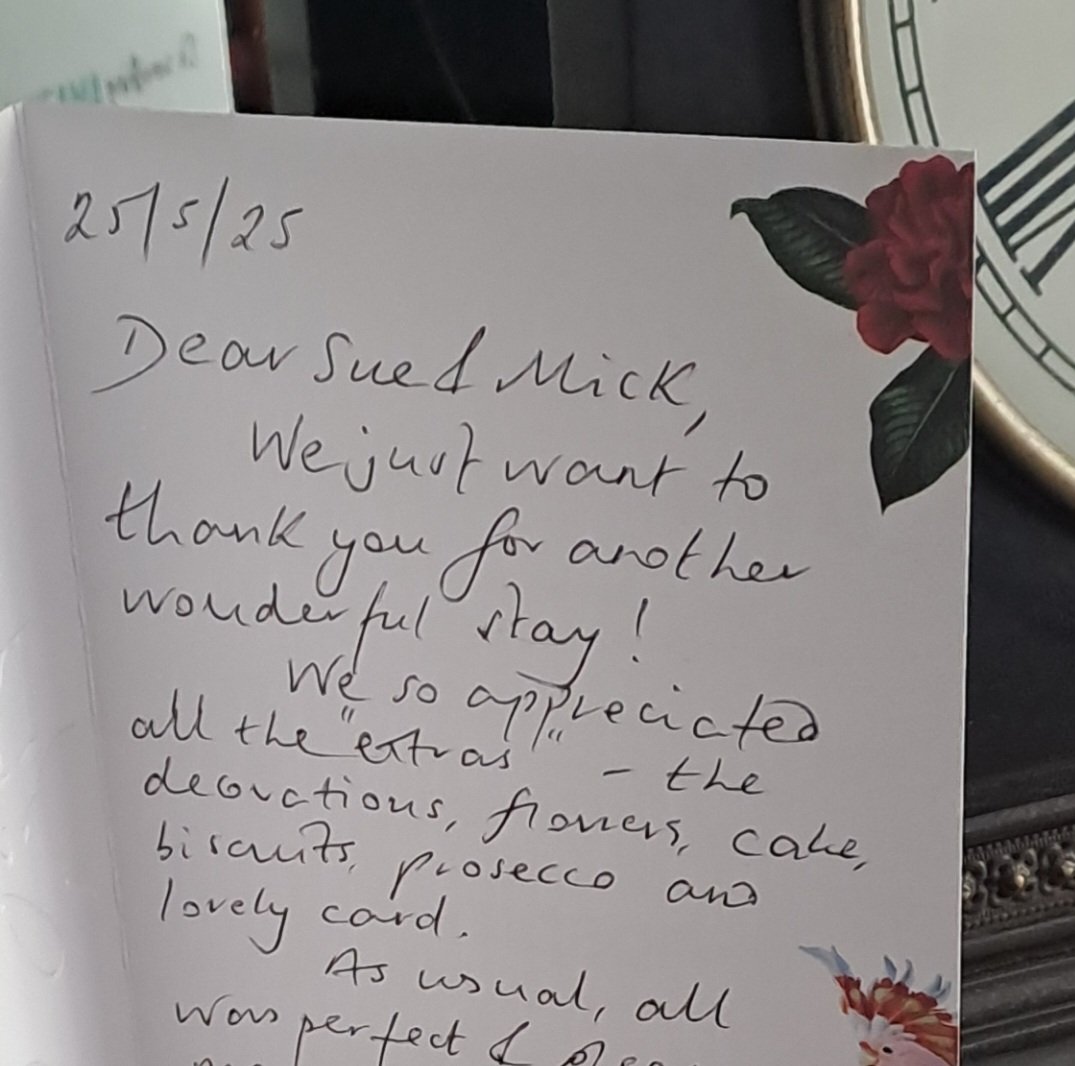 25/5/25
Dear Sue & Mick,
We just want to
thank you for another
wonderful stay!
We so appreciated
all the "extras" - the
decorations, flowers, cake,
biscuits, prosecco and
lovely card.
As usual, all
was perfect &